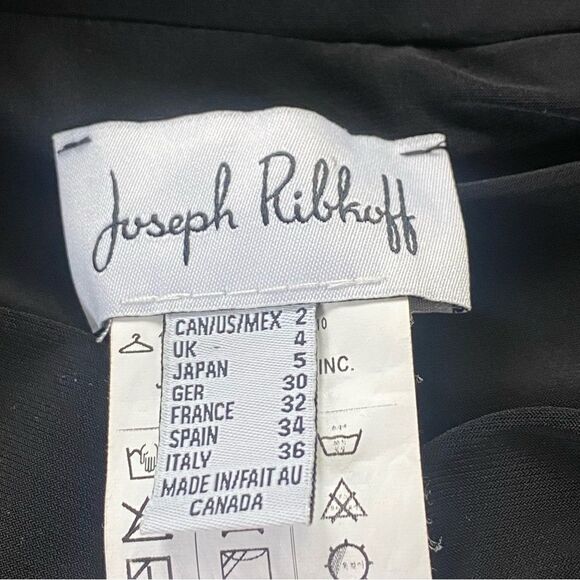 Joseph Ribkoff
CAN/US/MEX 2
UK 4
JAPAN 5
GER 30
FRANCE 32
SPAIN 34
ITALY 36
MADE IN/FAIT AU
CANADA
10
INC.